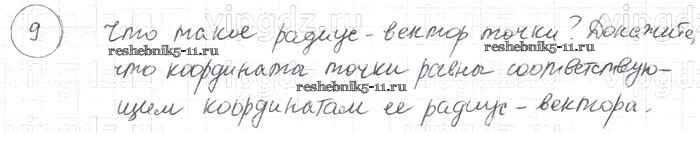 9 Что такое радиус-вектор точки? Докажите,
reshebnik5-11.ru reshebnik5-11.ru
что координаты точки равны соответствую-
щим координатам ее радиус-вектора.
reshebnik5-11.ru reshebnik5-11.ru